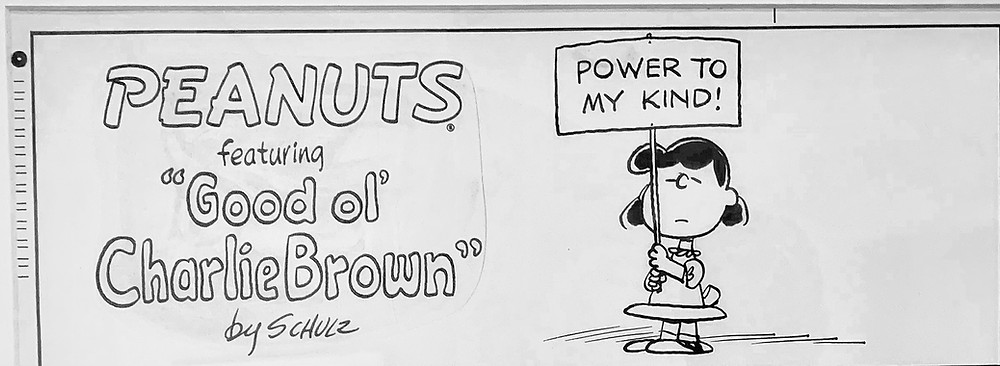 PEANUTS®
featuring
"Good ol'
Charlie Brown"
by SCHULZ
POWER TO
MY KIND!